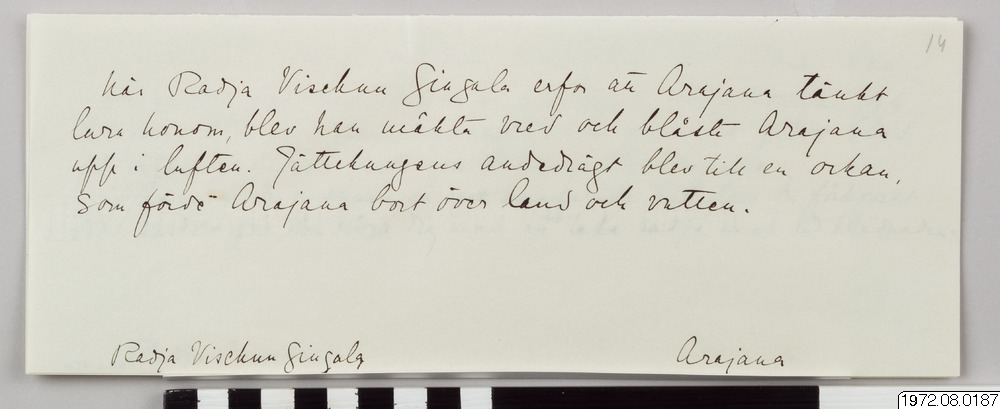 14
När Radja Vischnu Gingala erfor att Arajana tänkt
lura honom, blev han mäkta vred och blåste Arajana
upp i luften. Jättekungens andedrägt blev till en orkan,
som förde Arajana bort över land och vatten.
Radja Vischnu Gingala Arajana
1972.08.0187